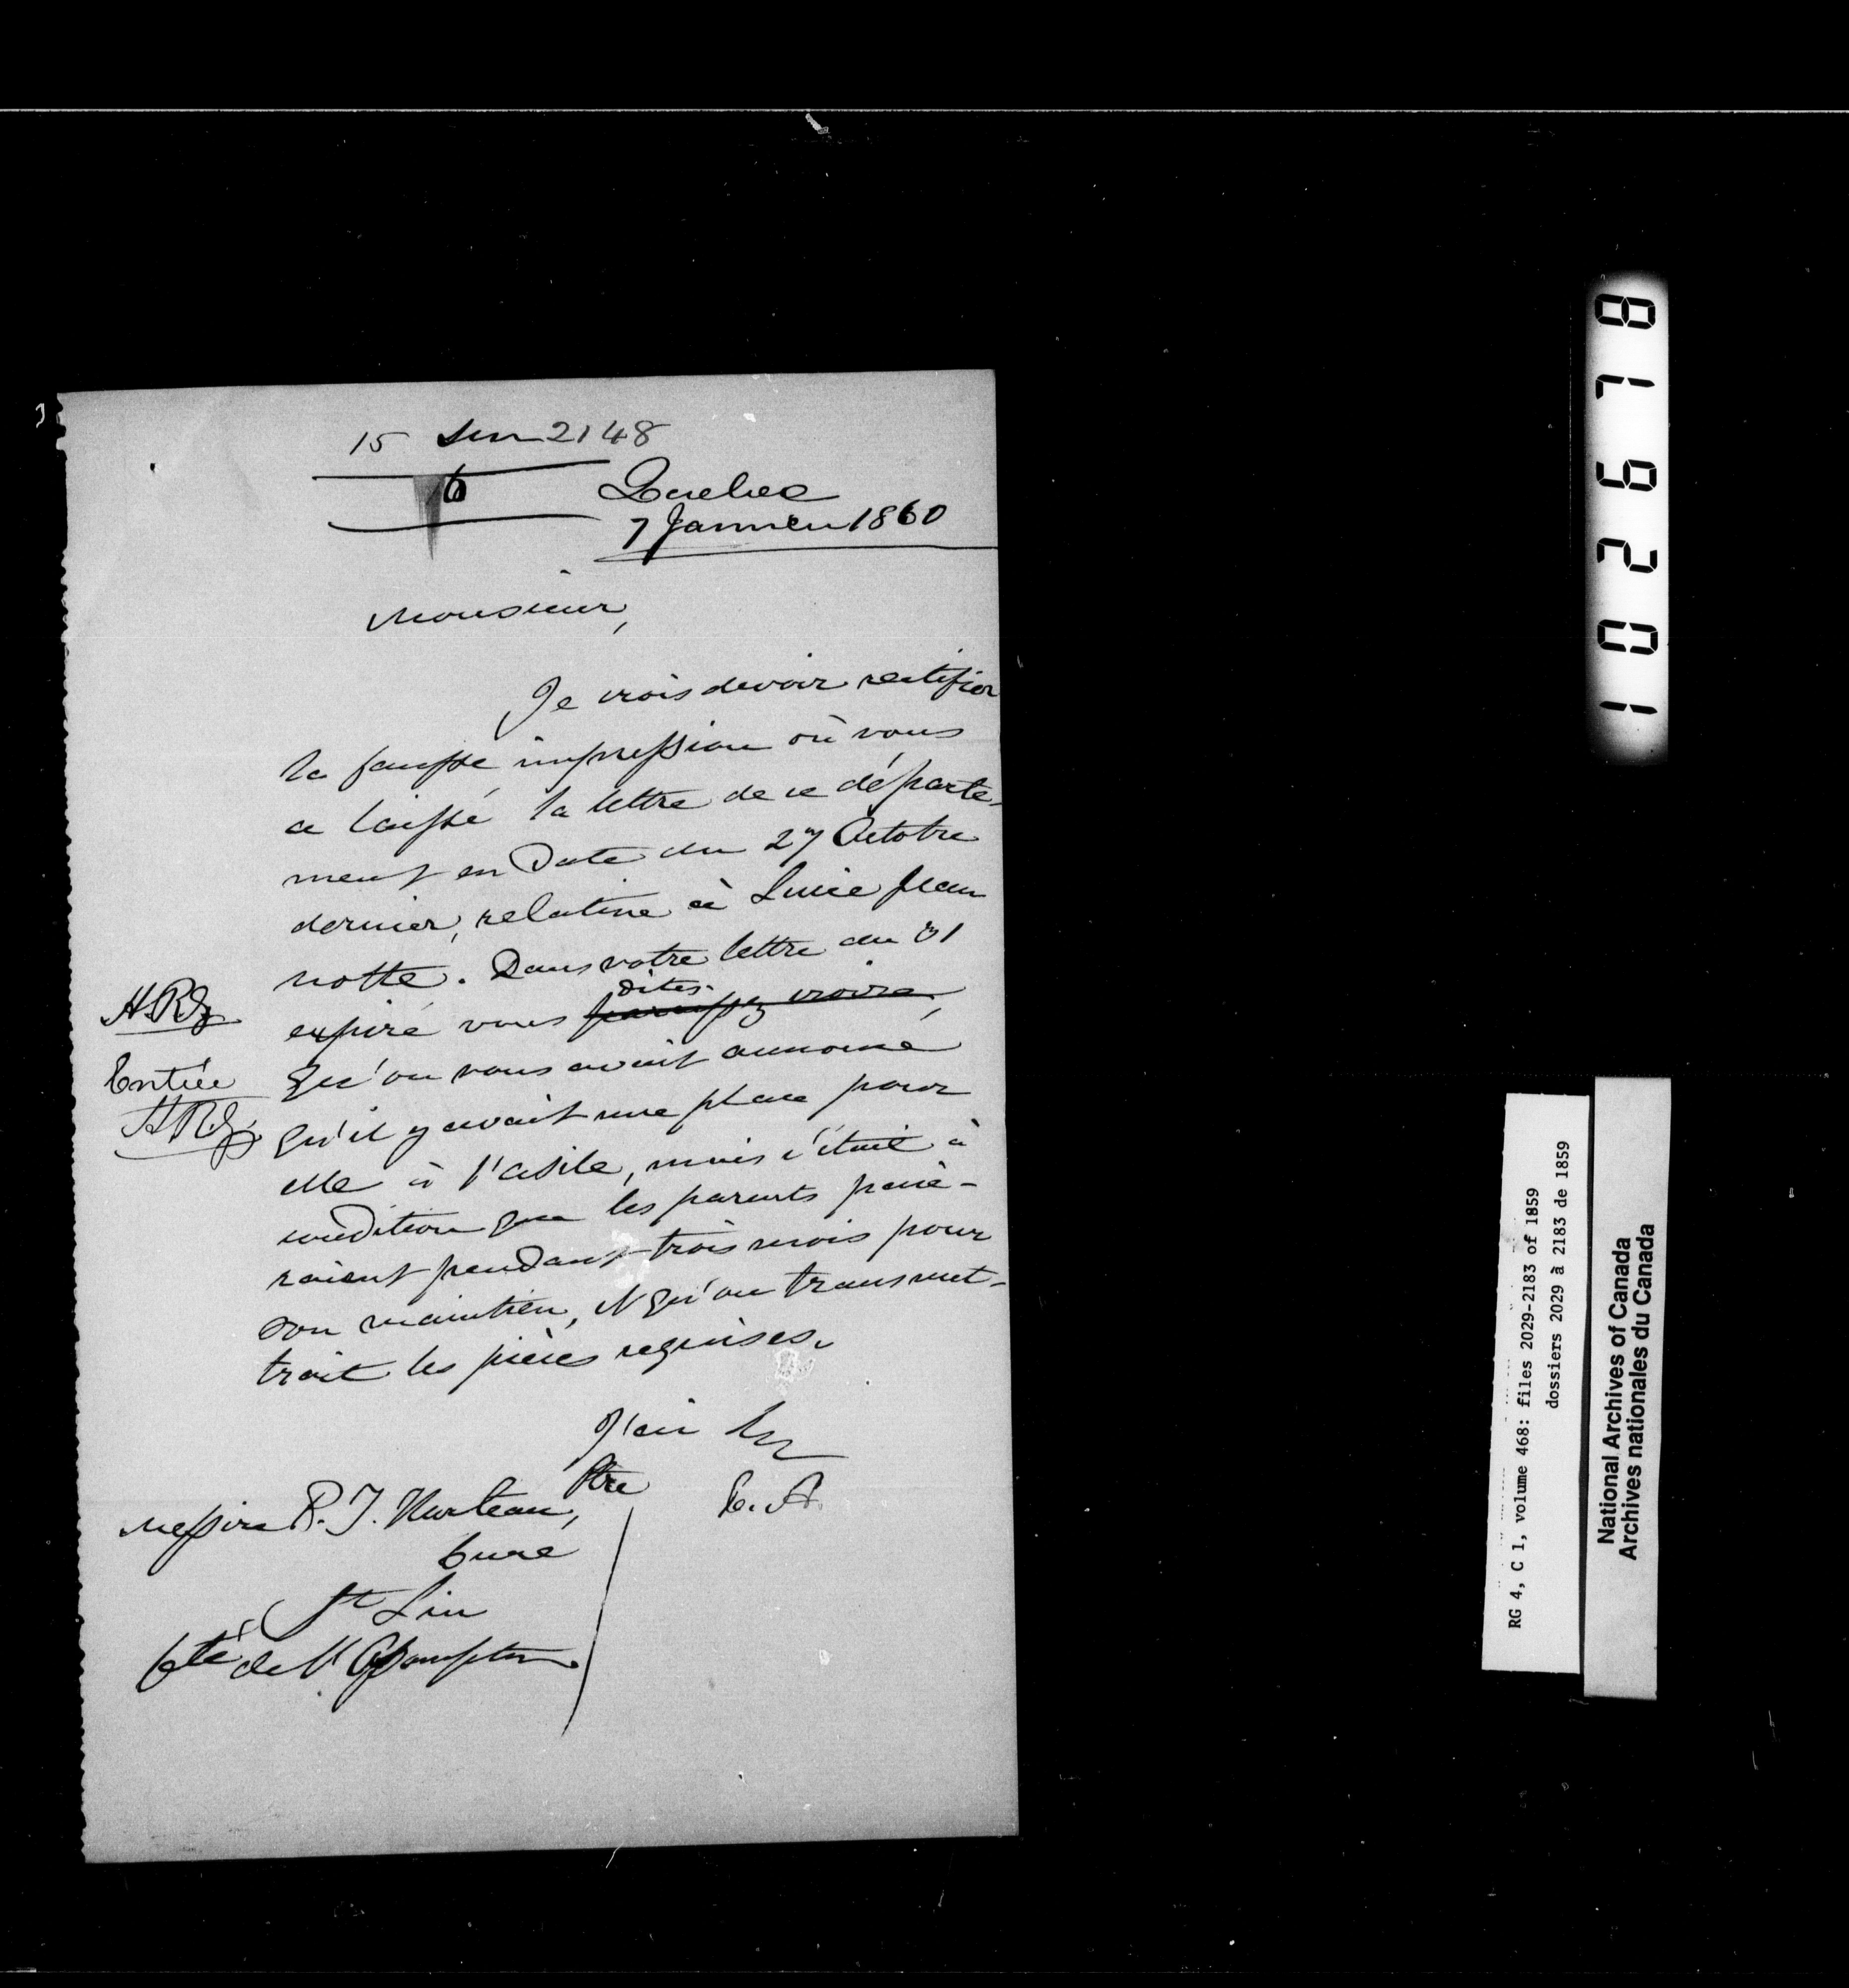 15 sur 2148
6
Quebec
7 Janvier 1860
Monsieur,
Je crois devoir rectifier
la fausse impression où vous
a laissé la lettre de ce départe-
ment en date du 27 Octobre
dernier, relative à Lucie Jean
notte. Dans votre lettre du 31
dites
expiré vous paraissez croire,
qu'on vous avait annoncé
qu'il y avait une place pour
elle à l'asile, mais c'était à
condition que les parents paie-
raient pendant trois mois pour
son maintien, et qu'on transmet-
trait les pièces requises.
J'ai l'hr
C. A.
H.R.
Entrée
H.R.
Messire R. J. Marteau, Ptre
Curé
St Lin
Cté de l'Assomption
102678
RG 4, C 1, volume 468: files 2029-2183 of 1859
dossiers 2029 à 2183 de 1859
National Archives of Canada
Archives nationales du Canada